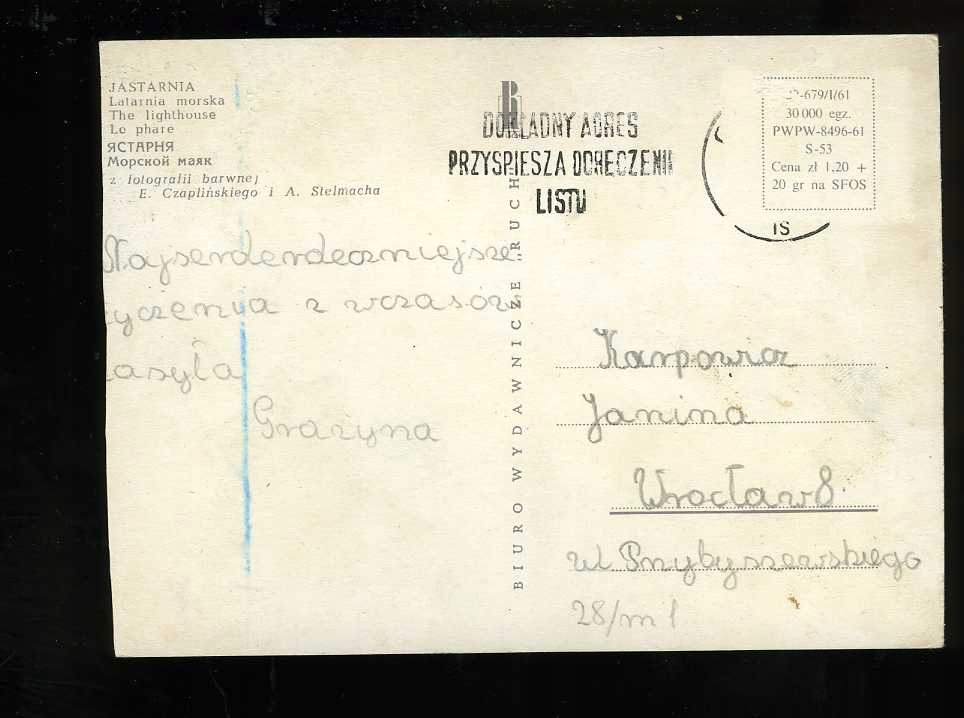 JASTARNIA
Latarnia morska
The lighthouse
Le phare
ЯСТАРНЯ
Морской маяк
z fotografii barwnej
E. Czaplińskiego i A. Stelmacha
R
DOKŁADNY ADRES
PRZYSPIESZA DORĘCZENIE
LISTU
-679/I/61
30 000 egz.
PWPW-8496-61
S-53
Cena zł 1,20 +
20 gr na SFOS
IS
BIURO WYDAWNICZE „RUCH"
Najserdenderdeczniejsze
yczenia z wczasów
asyła
Grażyna
Karpowicz
Janina
Wrocław 8.
ul Przybyszewskiego
28/m 1